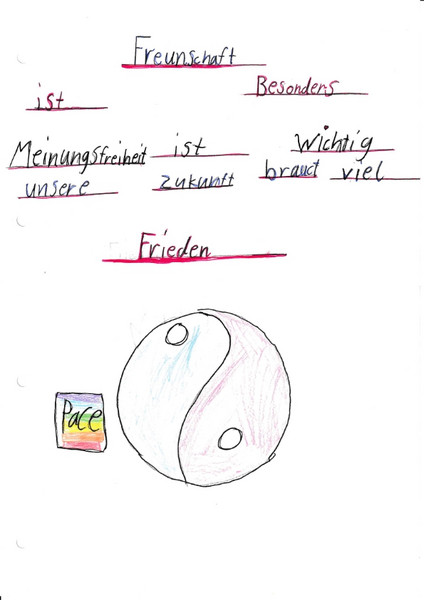 Freunschaft
ist Besonders
Meinungsfreiheit ist Wichtig
unsere zukunft brauct viel
Frieden
Pace